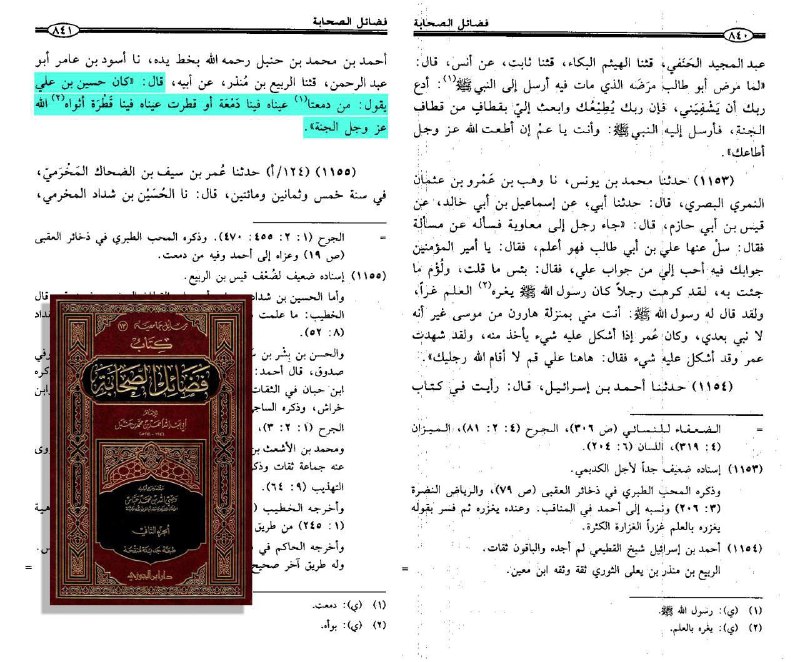 فضائل الصحابة
٨٤٠
عبد المجيد الحَنَفي، قثنا الهيثم البكاء، قثنا ثابت، عن أنس، قال:
«لما مَرضَ أبو طالب مَرَضَه الذي مات فيه أرسل إلى النبي ﷺ(١): أدع
ربك أن يَشْفِيَني، فإن ربك يُطِيْعُك وابعث إليّ بقطافٍ من قطاف
الجنة، فأرسل إليه النبي ﷺ: وأنت يا عمّ إن أطعت الله عز وجل
أطاعك».
(١١٥٣) حدثنا محمد بن يونس، نا وهب بن عَمْرو بن عثمان
النمري البصري، قال: حدثنا أبي، عن إسماعيل بن أبي خالد، عن
قيس بن أبي حازم، قال: «جاء رجل إلى معاوية فسأله عن مسألة
فقال: سلْ عنها علي بن أبي طالب فهو أعلم، فقال: يا أمير المؤمنين
جوابك فيه أحب إلي من جواب علي، فقال: بئس ما قلت، ولُؤم ما
جئت به، لقد كرهت رجلاً كان رسول الله ﷺ يغره(٢) العلم غراً،
ولقد قال له رسول الله ﷺ: أنت مني بمنزلة هارون من موسى غير أنه
لا نبي بعدي، وكان عُمر إذا أشكل عليه شيء يأخذ منه، ولقد شهدت
عمر وقد أشكل عليه شيء فقال: هاهنا علي قم لا أقام الله رجليك».
(١١٥٤) حدثنا أحمد بن إسرائيل، قال: رأيت في كتاب
= الضعفاء للنسائي (ص ٣٠٦)، الجرح (٤: ٢: ٨١)، الميزان
(٤: ٣١٩)، اللسان (٦: ٢٠٤).
(١١٥٣) إسناده ضعيف جداً لأجل الكديمي.
وذكره المحب الطبري في ذخائر العقبى (ص ٧٩)، والرياض النضرة
(٣: ٢٠٦) ونسبه إلى أحمد في المناقب. وعنده يغزره ثم فسر بقوله
يغزره بالعلم غزراً الغزارة الكثرة.
(١١٥٤) أحمد بن إسرائيل شيخ القطيعي لم أجده والباقون ثقات.
الربيع بن منذر بن يعلى الثوري ثقة وثقه ابن معين.
=
(١) (ي): رسول الله ﷺ.
(٢) (ي): يغره بالعلم.
فضائل الصحابة
٨٤١
أحمد بن محمد بن حنبل رحمه الله بخط يده، نا أسود بن عامر أبو
عبد الرحمن، قثنا الربيع بن مُنذر، عن أبيه، قال: «كان حسين بن علي
يقول: من دمعتا(١) عيناه فينا دَمْعَة أو قطرت عيناه فينا قَطْرَة أثواه(٢) الله
عز وجل الجنة».
(١١٥٥) (١٢٤/أ) حدثنا عُمر بن سيف بن الضحاك المَخْرَميّ،
في سنة خمس وثمانين ومائتين، قال: نا الحُسَيْن بن شداد المخرمي،
= الجرح (١: ٢: ٤٥٥: ٤٧٠). وذكره المحب الطبري في ذخائر العقبى
(ص ١٩) وعزاه إلى أحمد وفيه من دمعت.
(١١٥٥) إسناده ضعيف لضُعْف قيس بن الربيع.
وأما الحسين بن شداد
قال
الخطيب: ما علمت
(٨: ٥٢).
والحسن بن بِشْر بن
صدوق، قال أحمد:
ابن حبان في الثقات
خراش، وذكره الساجي
الجرح (١: ٢: ٣)،
ومحمد بن الأشعث بن
عنه جماعة ثقات وذكر
التهذيب (٩: ٦٤).
وأخرجه الخطيب
(١: ٢٤٥) من طريق
وأخرجه الحاكم في
وله طريق آخر صحيح
=
(١) (ي): دمعت.
(٢) (ي): بوأه.
كتاب
فضائل الصحابة
الجزء الثاني
دار ابن الجوزي